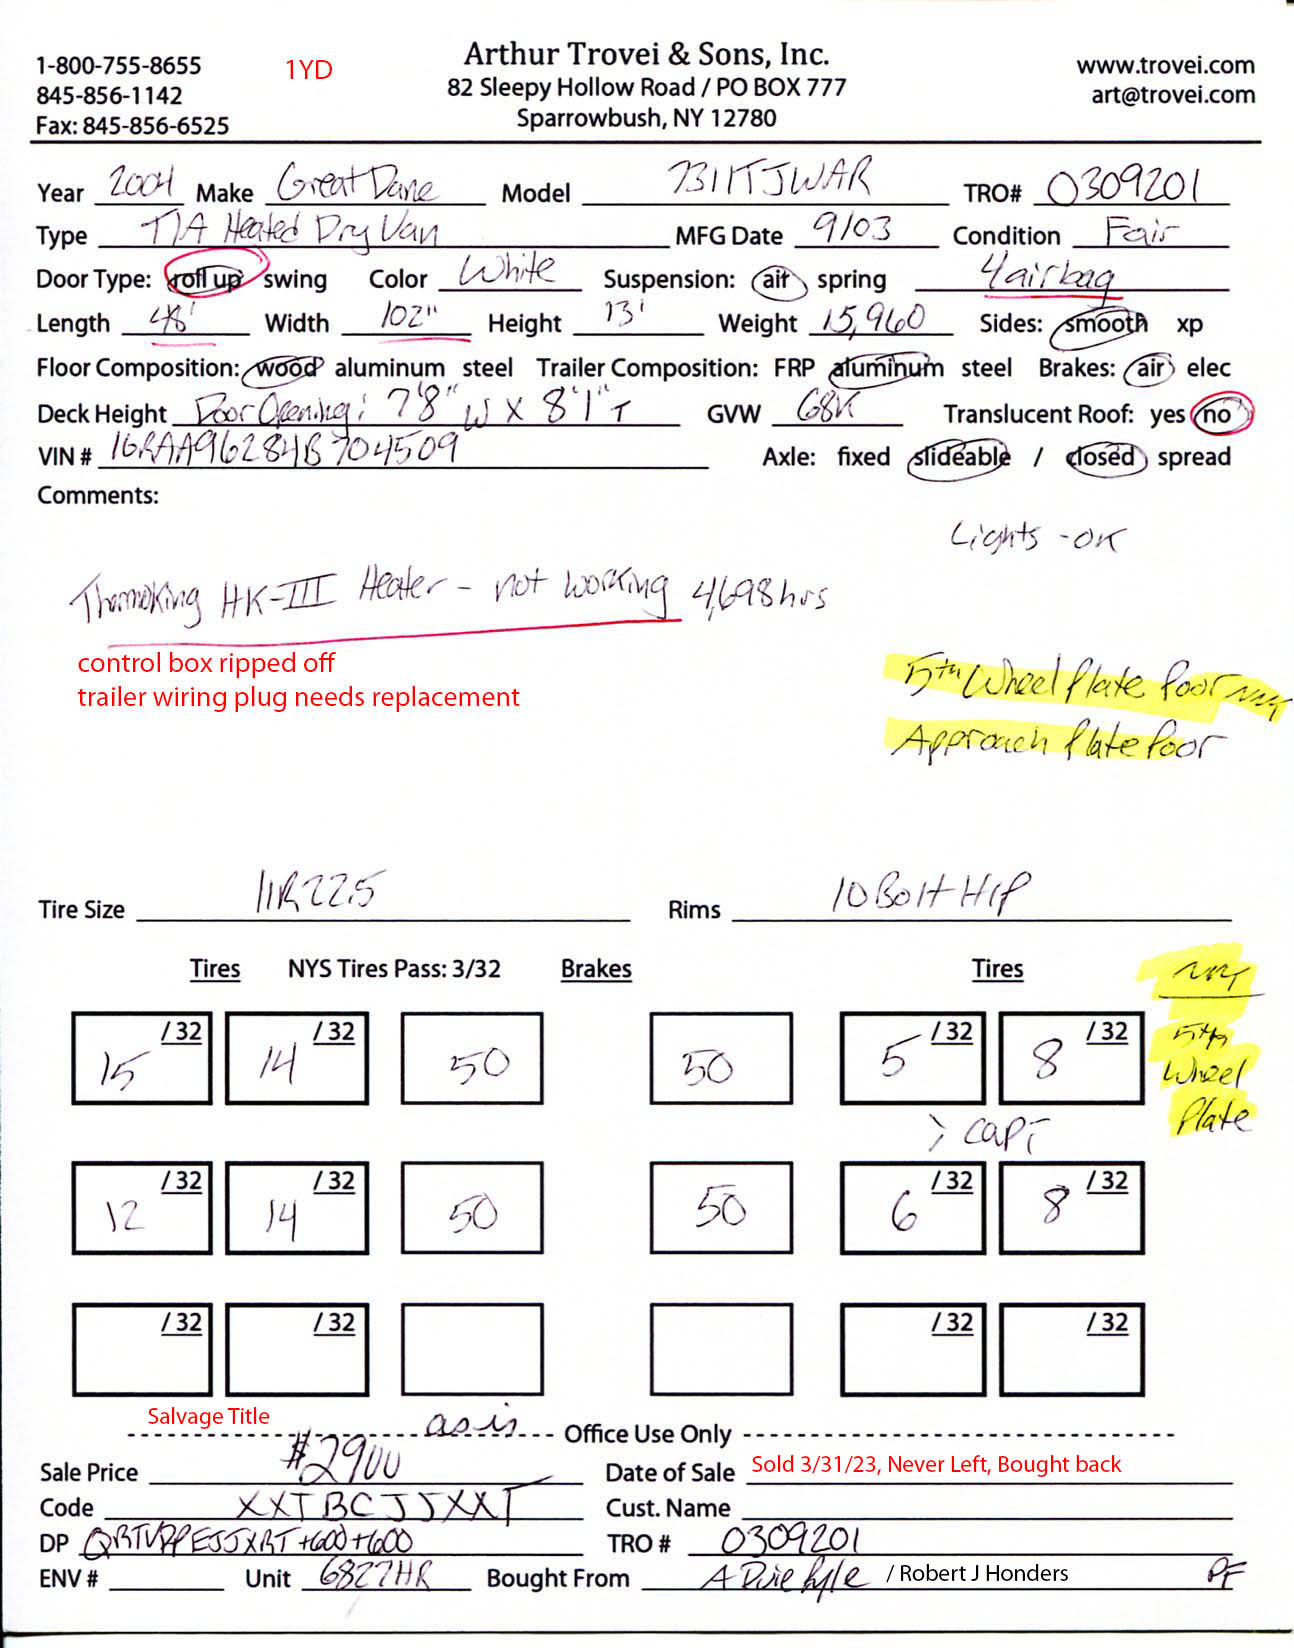 1-800-755-8655
845-856-1142
Fax: 845-856-6525
1YD
Arthur Trovei & Sons, Inc.
82 Sleepy Hollow Road / PO BOX 777
Sparrowbush, NY 12780
www.trovei.com
art@trovei.com
Year 2004 Make Great Dane Model 7311TJWAR TRO# 0309201
Type T/A Heated Dry Van MFG Date 9/03 Condition Fair
Door Type: roll up swing Color White Suspension: air spring 4 airbag
Length 48' Width 102" Height 13' Weight 15,960 Sides: smooth xp
Floor Composition: wood aluminum steel Trailer Composition: FRP aluminum steel Brakes: air elec
Deck Height Door Opening: 7'8" W x 8'1" T GVW 68K Translucent Roof: yes no
VIN # 1GRAA96284B704509 Axle: fixed slideable / closed spread
Comments:
Lights - OK
Thermoking HK-III Heater - not working 4,698 hrs
control box ripped off
trailer wiring plug needs replacement
5th Wheel Plate Poor
Approach Plate Poor
Tire Size 11R22.5 Rims 10 Bolt H/P
Tires NYS Tires Pass: 3/32 Brakes Tires
15 /32 14 /32 50 50 5 /32 8 /32
5th
Wheel
Plate
> cap
12 /32 14 /32 50 50 6 /32 8 /32
/32 /32 /32 /32
Salvage Title
as is Office Use Only
Sale Price $2900 Date of Sale Sold 3/31/23, Never Left, Bought back
Code XXTBCJJXXT Cust. Name
DP +600+600 TRO # 0309201
ENV # Unit 6827HR Bought From A Duie Pyle / Robert J Honders PF